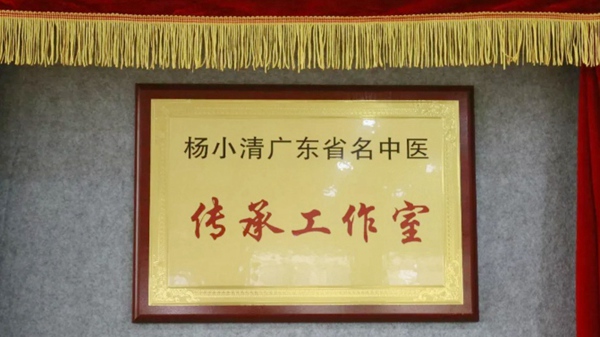 杨小清广东省名中医
传承工作室